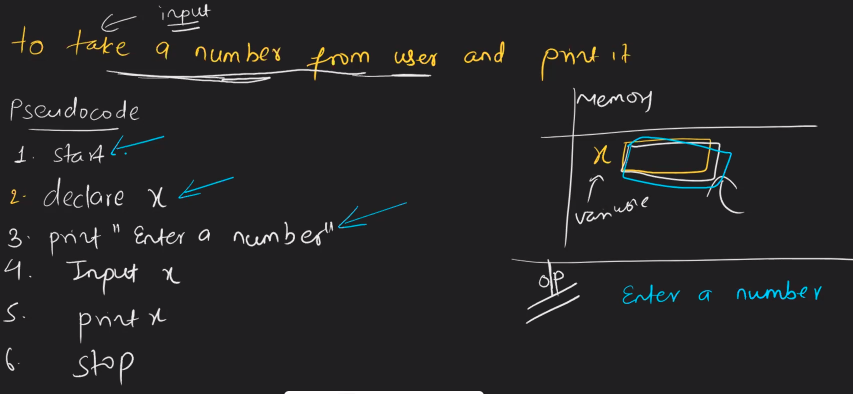 input
to take a number from user and print it
Pseudocode
1. start
2. declare x
3. print "Enter a number"
4. Input x
5. print x
6. stop
Memory
x
variable
o/p
Enter a number